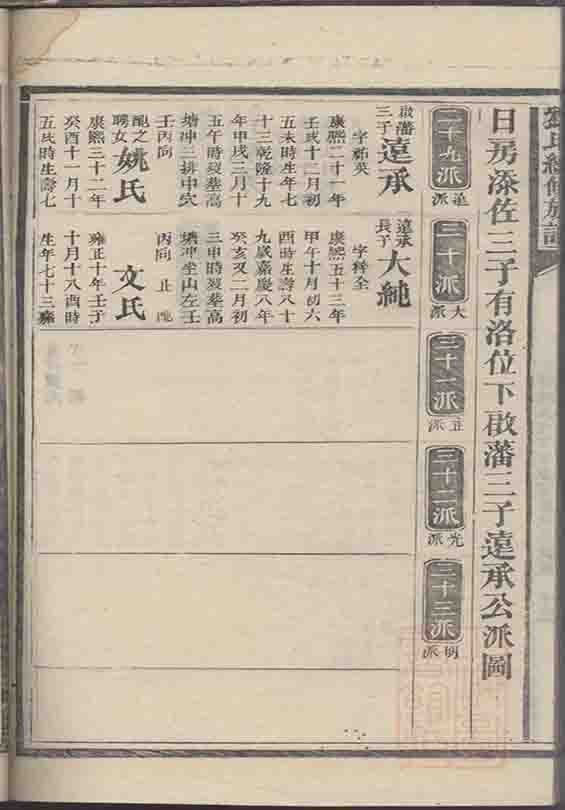 日房添佐三子有洛位下啟藩三子遠承公派圖
二十九派
遠派
三十派
大派
三十一派
正派
三十二派
光派
三十三派
明派
啟藩三子遠承
字祐英
康熙二十一年
壬戌十二月初
五未時生壽七
十三乾隆十九
年甲戌三月十
五午時歿葬高
塘冲三排中穴
壬丙向
配之聘女姚氏
康熙三十二年
癸酉十一月十
五辰時生壽七
遠承長子大純
康熙五十三年
甲午十月初六
酉時生壽八十
九歲嘉慶八年
癸亥双二月初
三申時歿葬高
塘冲坐山左壬
丙向
文氏
雍正十年壬子
十月十八酉時
生年七十三歲